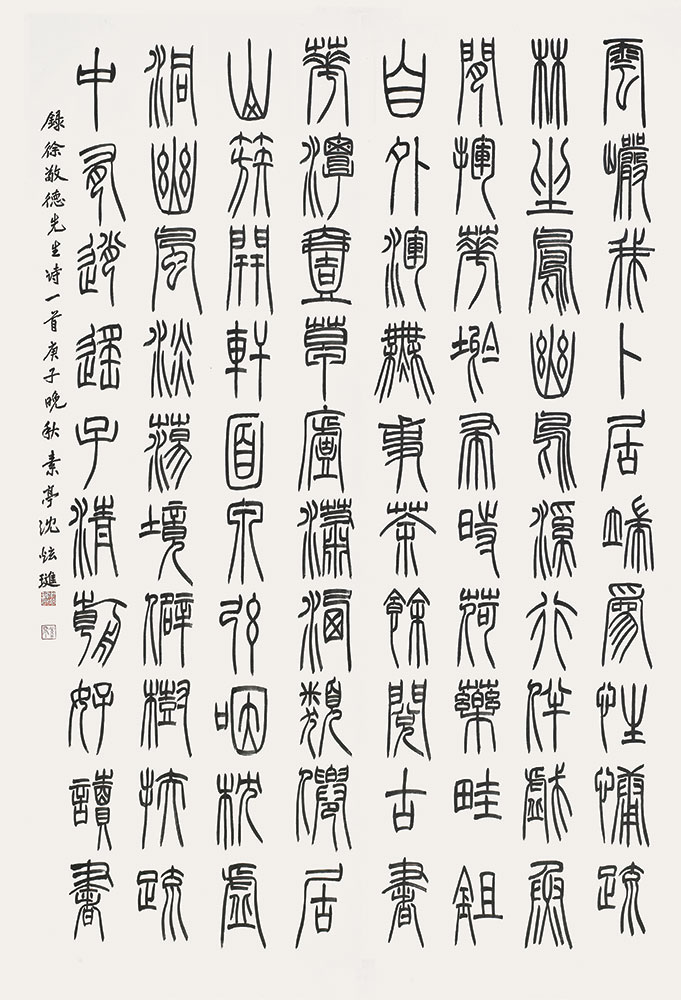 雲巖我卜居端爲性慵疏
林坐朋幽鳥溪行伴戲魚
閒揮華塢帚時荷藥畦鉏
自外渾無事茶餘閱古書
華潭壹草廬瀟洒類僊居
山簇開軒面泉弦咽枕虛
洞幽風淡蕩境僻樹扶疏
中有逍遙子清朝好讀書
錄徐敬德先生詩一首庚子晚秋素亭沈炫璡